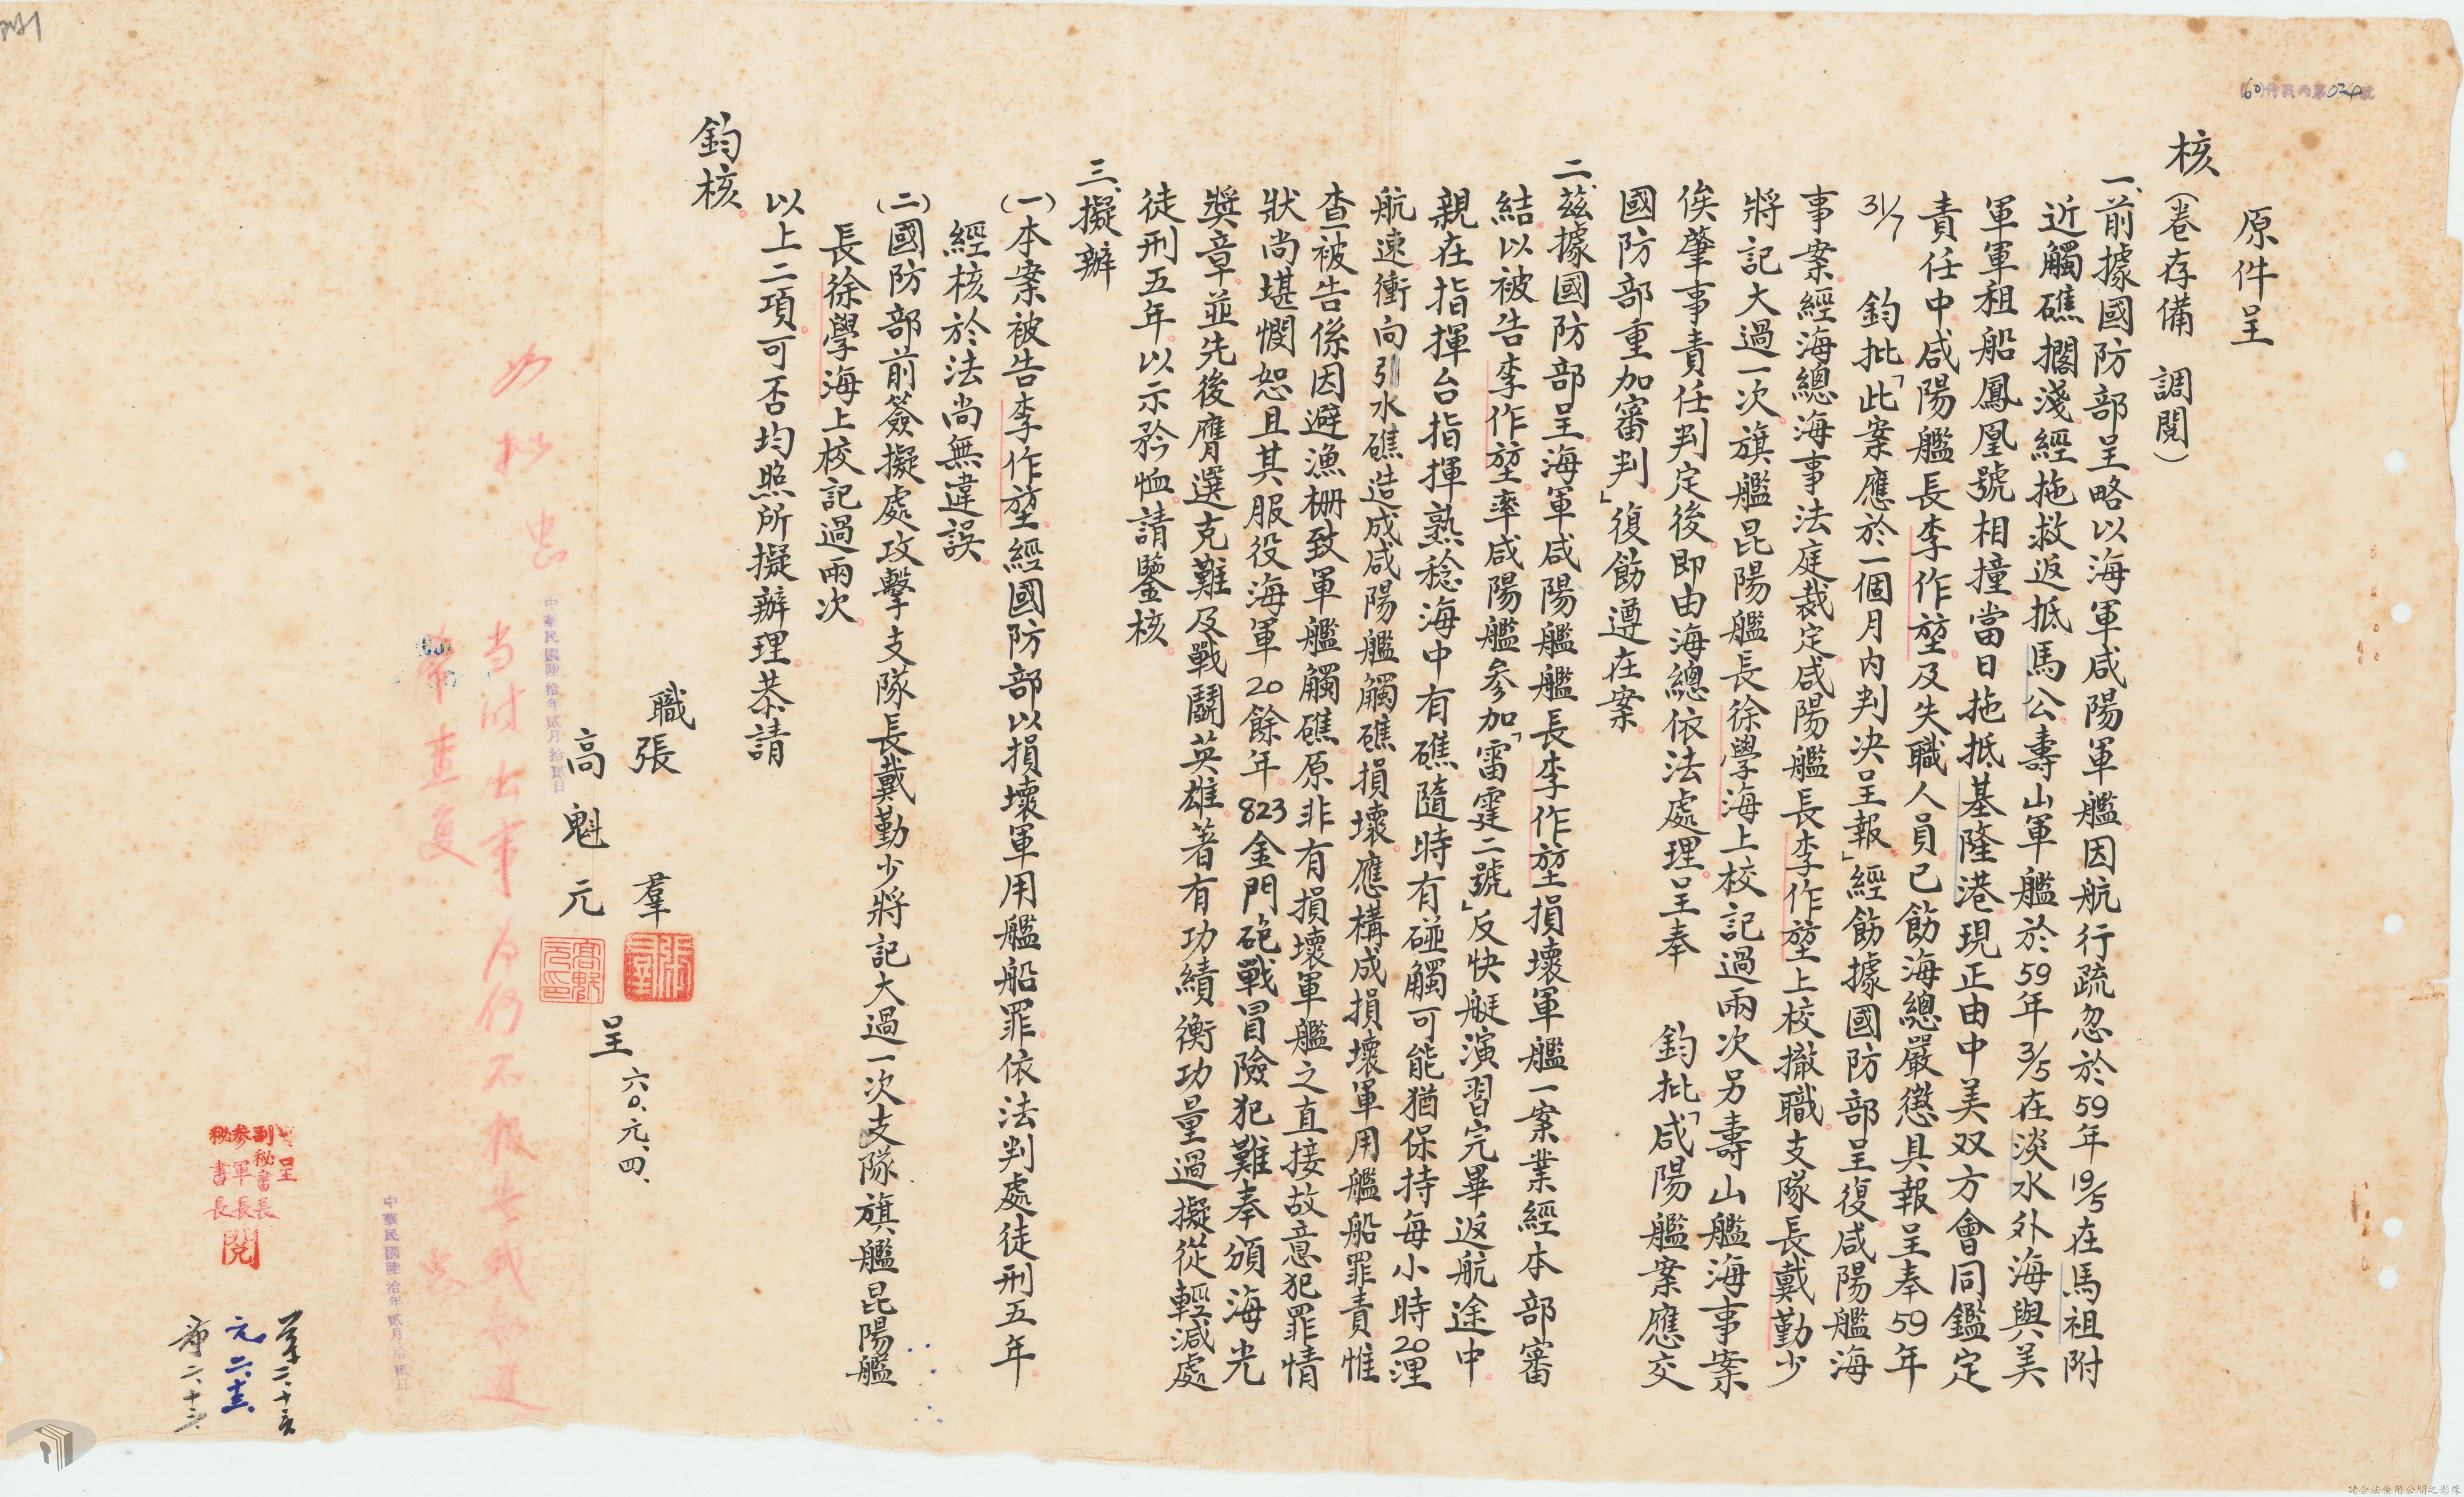 原件呈
核（卷存備 調閱）
一、前據國防部呈略以海軍咸陽軍艦因航行疏忽於59年19/5在馬祖附
近觸礁擱淺經拖救返抵馬公壽山軍艦於59年3/5在淡水外海與美
軍軍租船鳳凰號相撞當日拖抵基隆港現正由中美双方會同鑑定
責任中咸陽艦長李作堃及失職人員已飭海總嚴懲具報呈奉59年
31/7 鈞批「此案應於一個月內判決呈報」經飭據國防部呈復咸陽艦海
事案經海總海事法庭裁定咸陽艦長李作堃上校撤職支隊長戴勤少
將記大過一次旗艦昆陽艦長徐學海上校記過兩次另壽山艦海事案
俟肇事責任判定後即由海總依法處理呈奉 鈞批「咸陽艦案應交
國防部重加審判」復飭遵在案
二、茲據國防部呈海軍咸陽艦艦長李作堃損壞軍艦一案業經本部審
結以被告李作堃率咸陽艦參加「雷霆二號」反快艇演習完畢返航途中
親在指揮台指揮熟稔海中有礁隨時有碰觸可能猶保持每小時20浬
航速衝向引水礁造成咸陽艦觸礁損壞應構成損壞軍用艦船罪責惟
查被告係因避漁柵致軍艦觸礁原非有損壞軍艦之直接故意犯罪情
狀尚堪憫恕且其服役海軍20餘年823金門砲戰冒險犯難奉頒海光
獎章並先後膺選克難及戰鬪英雄著有功績衡功量過擬從輕減處
徒刑五年以示矜恤請鑒核
三、擬辦
(一)本案被告李作堃經國防部以損壞軍用艦船罪依法判處徒刑五年
經核於法尚無違誤
(二)國防部前簽擬處攻擊支隊長戴勤少將記大過一次支隊旗艦昆陽艦
長徐學海上校記過兩次
以上二項可否均照所擬辦理恭請
鈞核
職張 羣
高魁元
呈 六〇、元、四、
如擬
中華民國陸拾年貳月拾貳日
当时出事為何不報告我知道
希查复
中華民國陸拾年貳月拾貳日
呈
副秘書長
參軍長
秘書長
閱
元二、十三
二、十三
請合法使用公開之影像